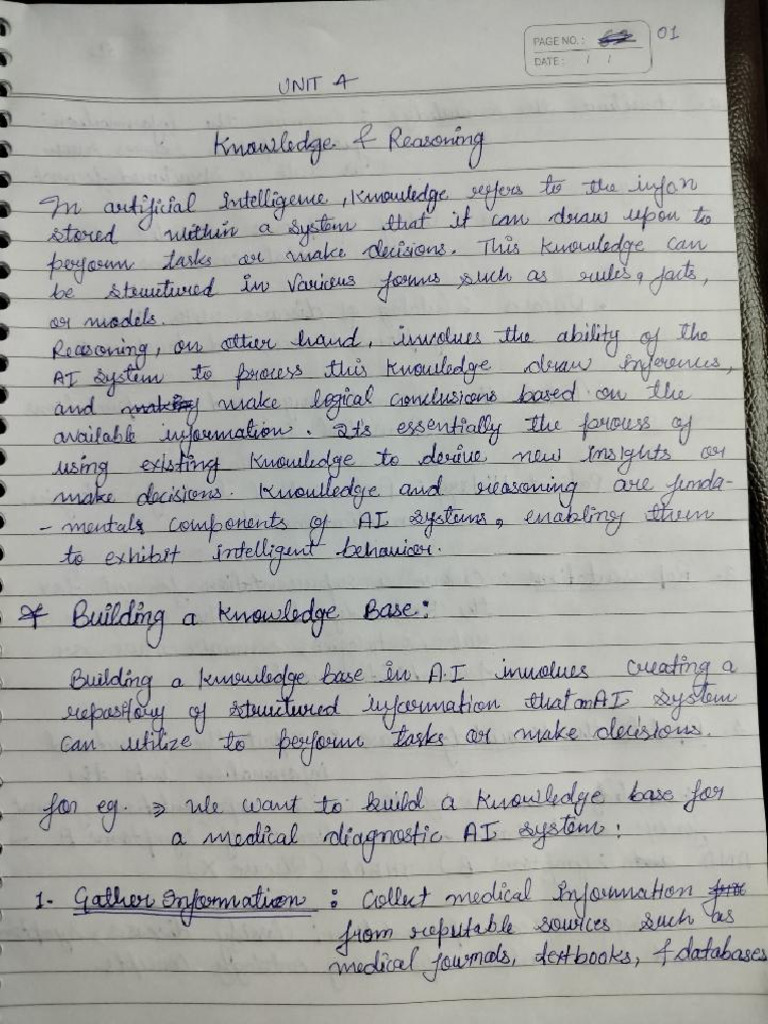 PAGE NO.: 01
DATE: / /
UNIT 4
Knowledge & Reasoning
In artificial Intelligence, Knowledge refers to the infon
stored within a system that it can draw upon to
perform tasks or make decisions. This Knowledge can
be structured in various forms such as rules, facts,
or models.
Reasoning, on other hand, involves the ability of the
AI system to process this Knowledge draw inferences,
and make logical conclusions based on the
available information. Its essentially the process of
using existing Knowledge to derive new insights or
make decisions. Knowledge and reasoning are funda-
- mentals components of AI systems, enabling them
to exhibit intelligent behavior.
* Building a Knowledge Base:
Building a Knowledge base in A.I involves creating a
repository of structured information that an AI system
can utilize to perform tasks or make decisions.
for eg. ⇒ We want to build a Knowledge base for
a medical diagnostic AI system:
1- Gather Information : Collect medical Information
from reputable sources such as
medical journals, textbooks, & databases